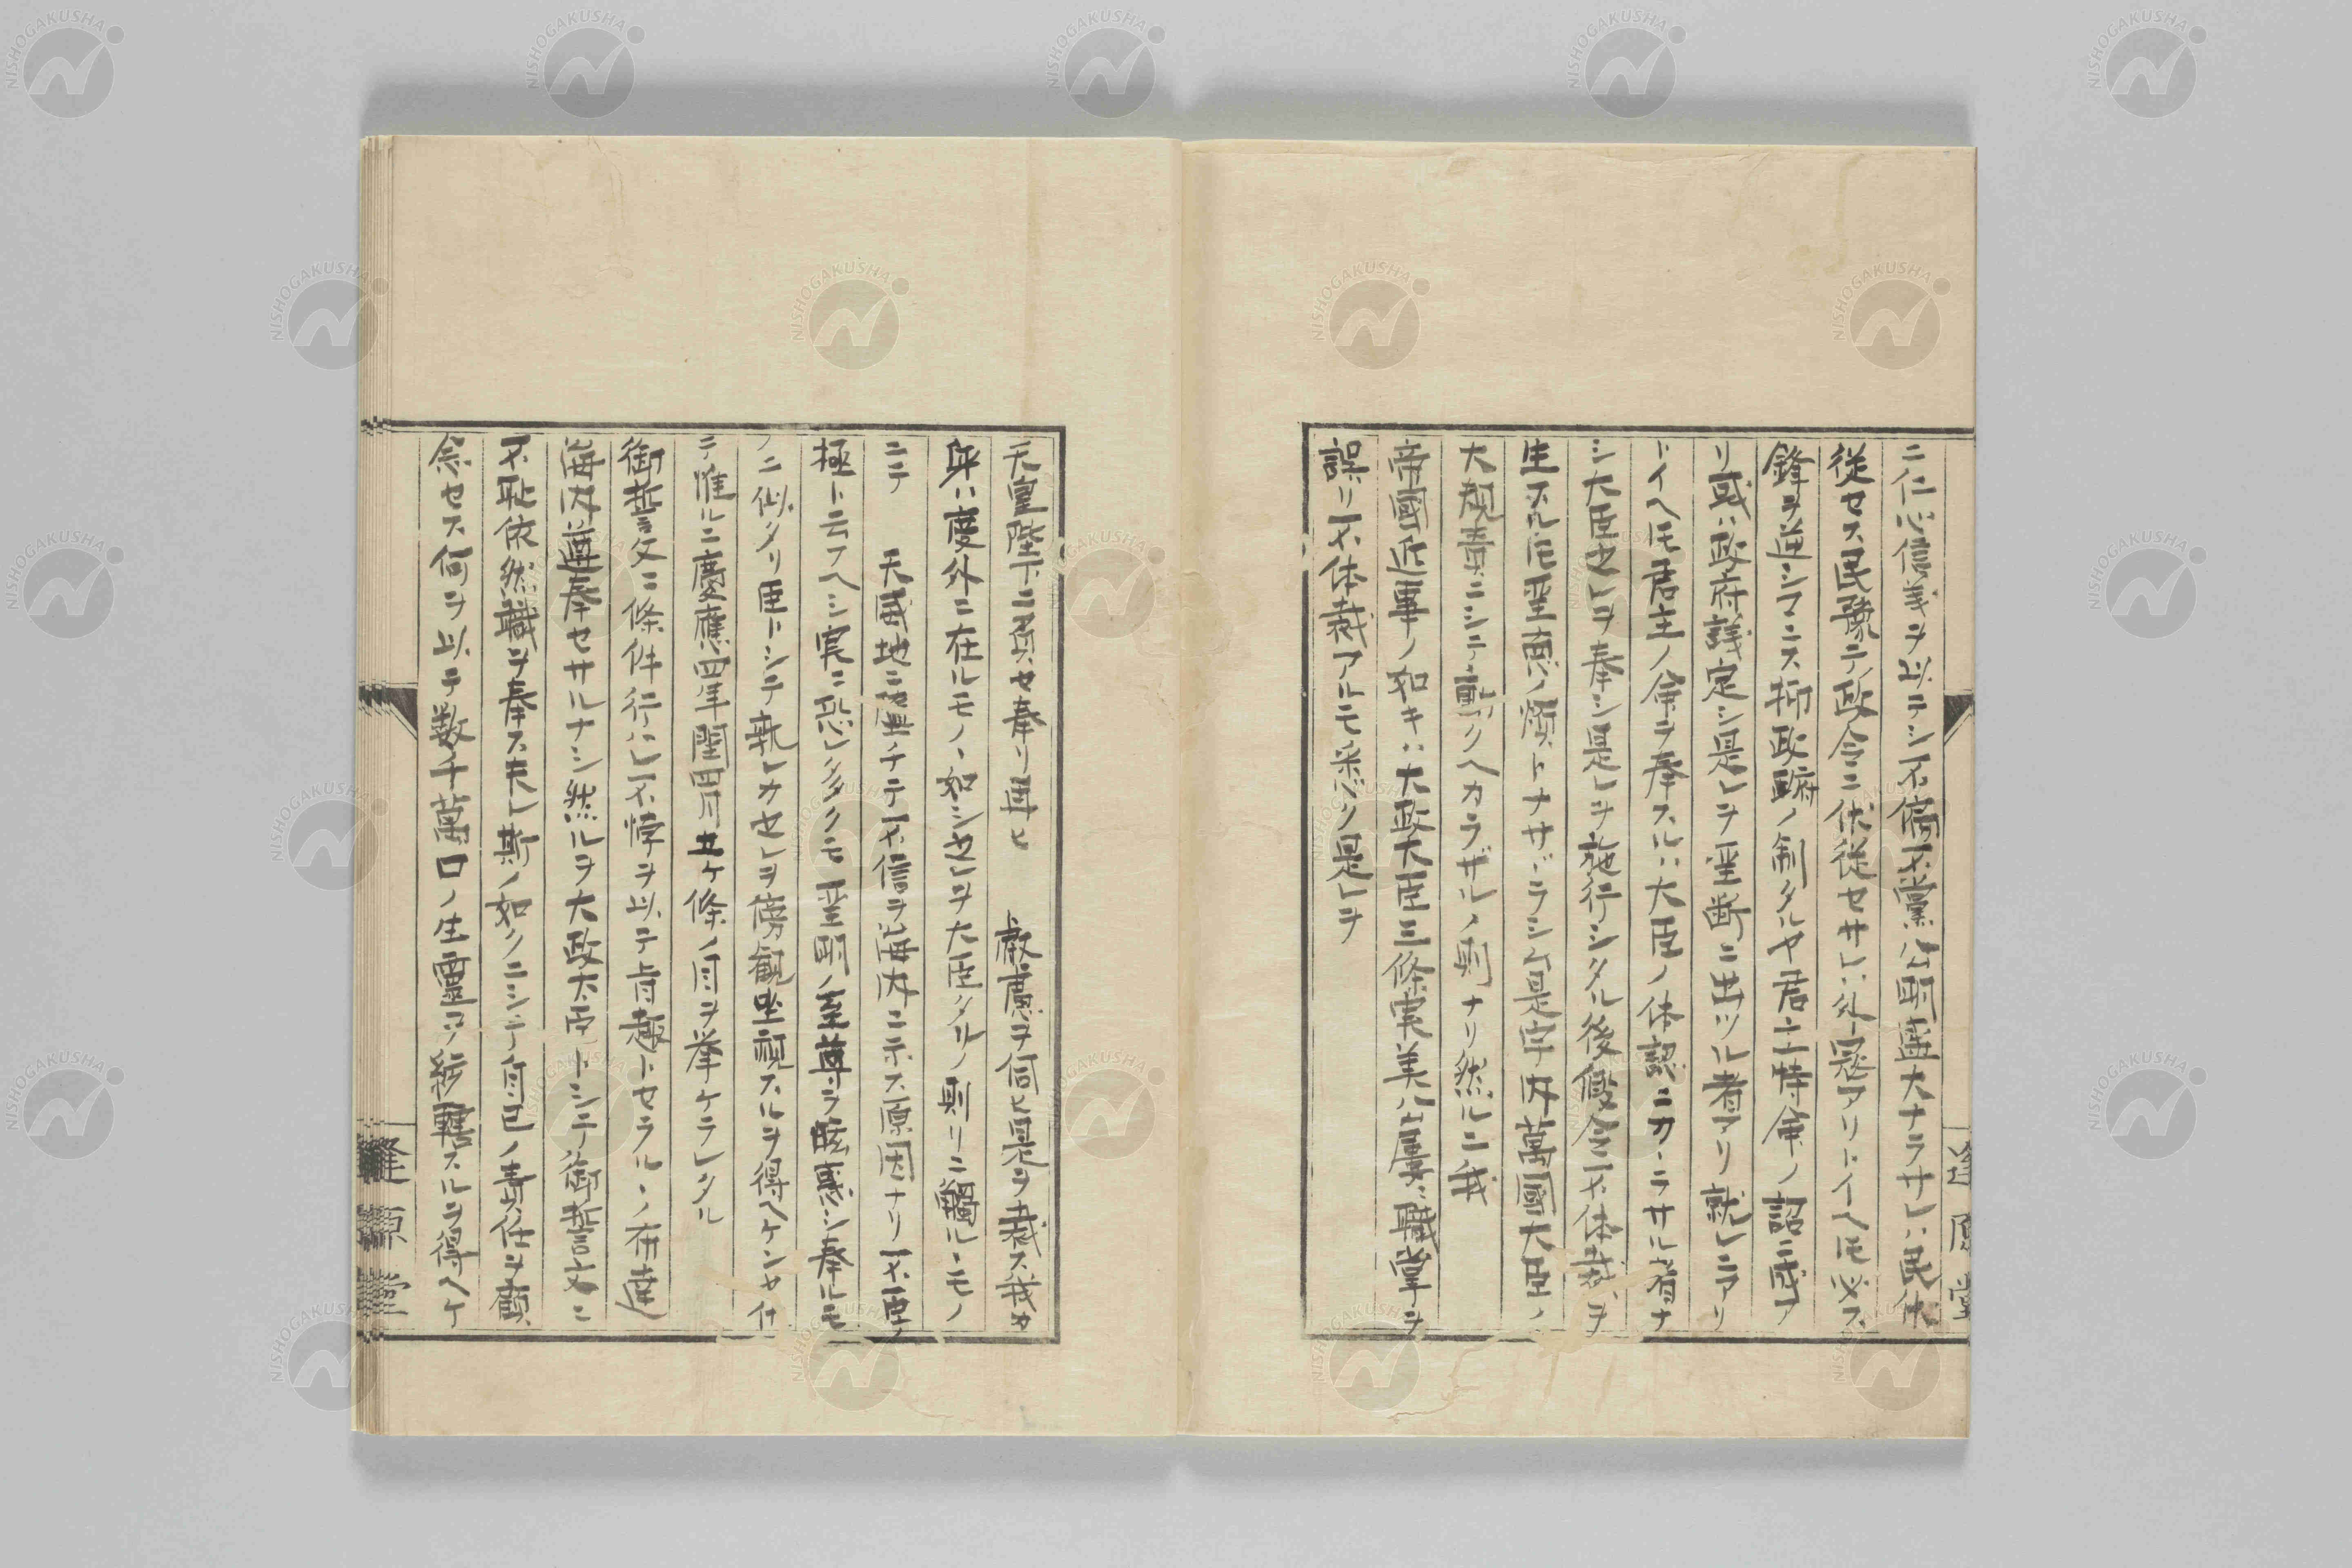 ニ仁ニ信義ヲ以テシ不偏不黨公明盛大ナラサレハ民休
従セス民豫テ政令ニ休従セサレハ外冦アリトイヘ𪜈必ス
鋒ヲ逆シマニス抑政蹟ノ制タルヤ君主特命ノ詔ニ或ア
リ或ハ政府議定シ是レヲ聖断ニ出ツル者アリ就レニアリ
トイヘ𪜈君主ノ命ヲ奉スルハ大臣ノ体認ニカヽラサル者ナ
シ大臣也レヲ奉シ是レヲ施行シタル後假令不体裁ヲ
生スル𪜈聖慮ノ煩トナサヾラシム是宇内萬國大臣ノ
大規責ニシテ動クヘカラザルノ則ナリ然ルニ我
帝國近事ノ如キハ大政大臣三條実美公屢職掌ヲ
誤リ不体裁アルモ悉ク是レヲ
天皇陛下ニ負セ奉リ再ヒ 叡慮ヲ伺ヒ是ヲ裁ス我カ
身ハ度外ニ在ルモノヽ如シ也レヲ大臣タルノ則リニ觸ルヽモノ
ニテ 天威地ニ墜チテ不信ヲ海内ニ示ス原因ナリ不臣ノ
極ト云フヘシ実ニ恐レ多クモ聖明ノ至尊ヲ眩惑シ奉ルモ
ノニ似タリ臣トシテ孰レカセレヲ傍観坐視スルヲ得ヘケンヤ付
テ惟ルニ慶應四年閏四月五ヶ條ノ旨ヲ挙ケラレタル
御誓文ニ條件行ハレ不悖ヲ以テ旨趣トセラルヽノ布達
海内遵奉セサルナシ然ルヲ大政大臣トシテ御誓言文ニ
不耻依然職ヲ奉ス夫レ斯ノ如クニシテ自己ノ責任ヲ顧
念セス何ヲ以テ数千萬口ノ生靈ヲ総轄スルヲ得ヘケ
逢原堂
逢原堂
NISHOGAKUSHA